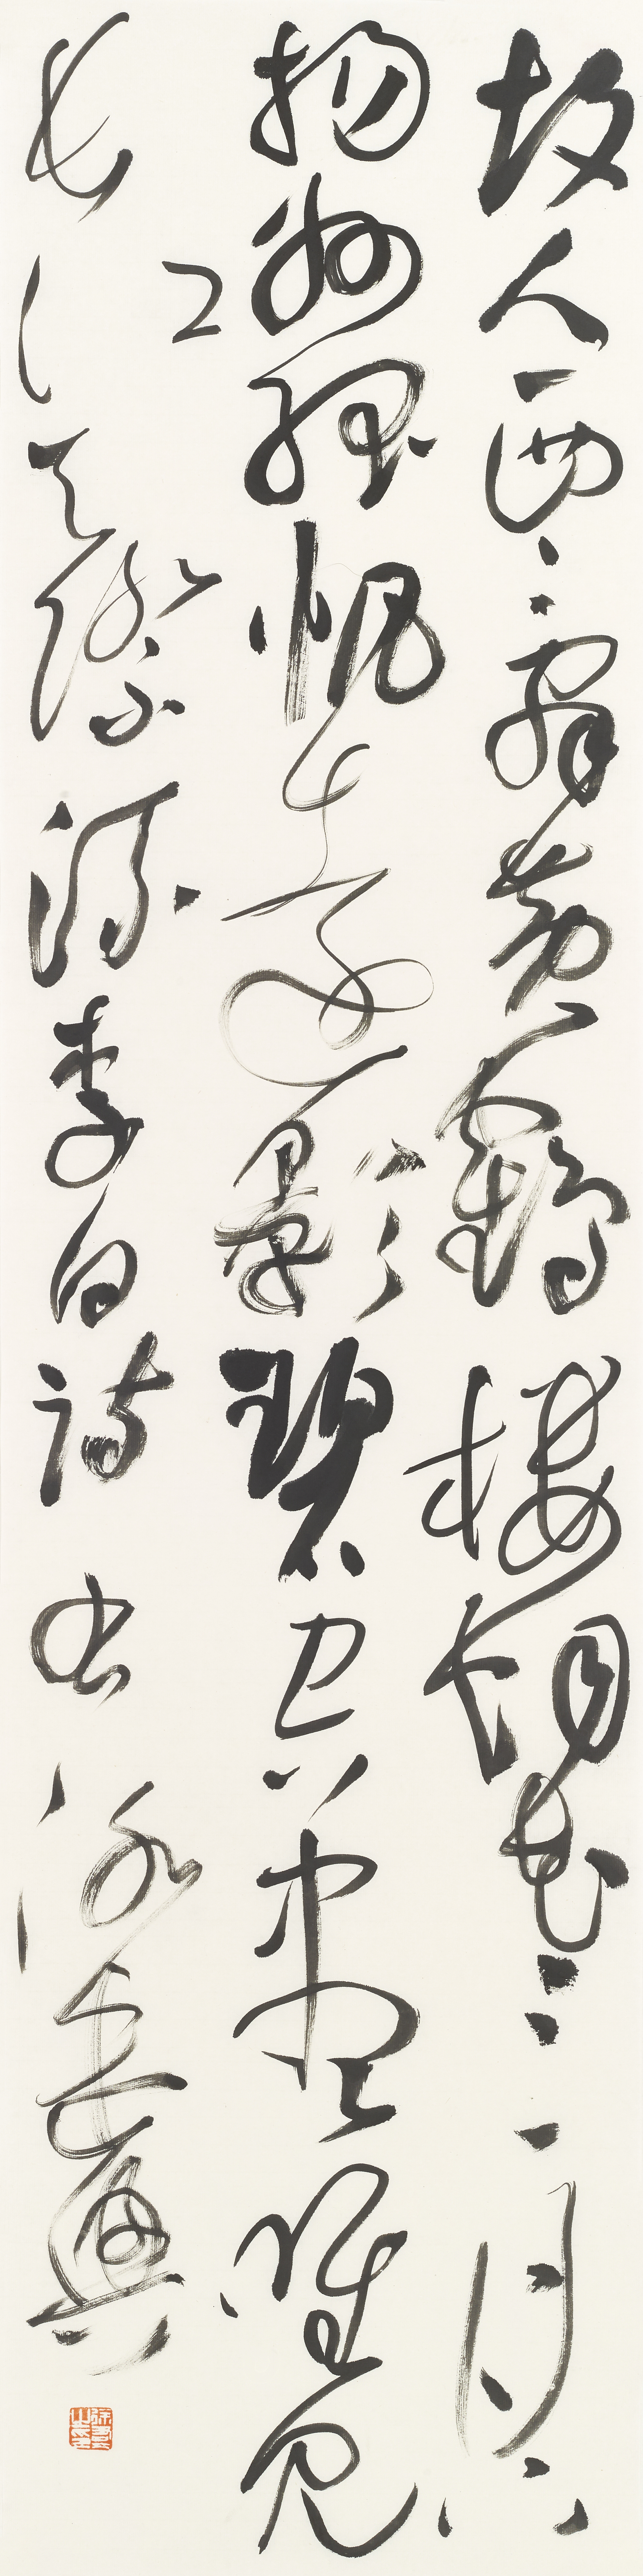 故人西辭黃鶴樓烟花三月下
揚州孤帆遠影碧空盡唯見
長江天際流李白詩